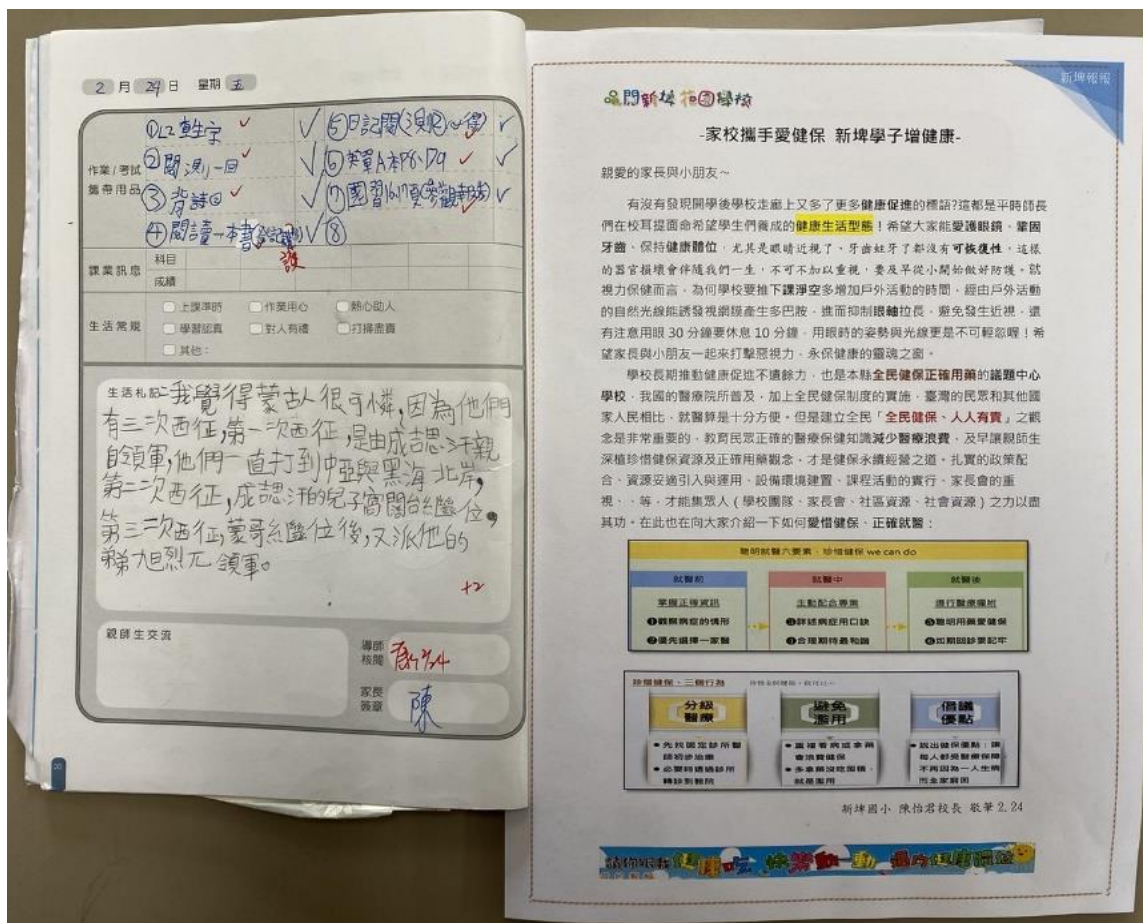 2 月 24 日 星期 五
作業/考試
攜帶用品
①L2生字
②閱測一回
③背詩回
④閱讀一本書
⑤日記閱
⑥英單A本P8、P9
⑧
課業訊息
科目
成績
生活常規
上課準時 作業用心 熱心助人
學習認真 對人有禮 打掃盡責
其他：
生活札記：我覺得蒙古人很可憐，因為他們
有三次西征，第一次西征，是由成吉思汗親
自領軍，他們一直打到中亞與黑海北岸，
第二次西征，成認汗的兒子窩闊台繼位，
第三次西征，蒙哥繼位後，又派他的
弟弟旭烈兀領軍。
+2
親師生交流
導師
核閱
2/24
家長
簽章
陳
20
新埤報報
新埤花園學校
-家校攜手愛健保 新埤學子增健康-
親愛的家長與小朋友～
有沒有發現開學後學校走廊上又多了更多健康促進的標語?這都是平時師長
們在校耳提面命希望學生們養成的健康生活型態！希望大家能愛護眼鏡、鞏固
牙齒、保持健康體位，尤其是眼睛近視了、牙齒蛀牙了都沒有可恢復性，這樣
的器官損壞會伴隨我們一生，不可不加以重視，要及早從小開始做好防護。就
視力保健而言，為何學校要推下課淨空多增加戶外活動的時間，經由戶外活動
的自然光線能誘發視網膜產生多巴胺，進而抑制眼軸拉長，避免發生近視，還
有注意用眼 30 分鐘要休息 10 分鐘，用眼時的姿勢與光線更是不可輕忽喔！希
望家長與小朋友一起來打擊惡視力，永保健康的靈魂之窗。
學校長期推動健康促進不遺餘力，也是本縣全民健保正確用藥的議題中心
學校，我國的醫療院所普及，加上全民健保制度的實施，臺灣的民眾和其他國
家人民相比，就醫算是十分方便。但是建立全民「全民健保、人人有責」之觀
念是非常重要的，教育民眾正確的醫療保健知識減少醫療浪費，及早讓親師生
深植珍惜健保資源及正確用藥觀念，才是健保永續經營之道。扎實的政策配
合、資源妥適引入與運用、設備環境建置、課程活動的實行、家長會的重
視、、等，才能集眾人（學校團隊、家長會、社區資源、社會資源）之力以盡
其功。在此也在向大家介紹一下如何愛惜健保、正確就醫：
聰明就醫六要素，珍惜健保 we can do
就醫前 就醫中 就醫後
掌握正確資訊 主動配合專業 遵行醫療囑咐
❶觀察病症的情形 ❸詳述病症用口訣 ❺聰明用藥愛健保
❷優先選擇一家醫 ❹合理期待最和諧 ❻如期回診要記牢
珍惜健保、三個行為
分級
醫療
避免
濫用
倡議
優點
先找固定診所醫
師初步治療
必要時透過診所
轉診到醫院
重複看病或拿藥
會浪費健保
多拿藥沒吃囤積，
就是濫用
說出健保優點：讓
每人都受醫療保障
不再因為一人生病
而全家貧困
新埤國小 陳怡君校長 敬筆 2.24